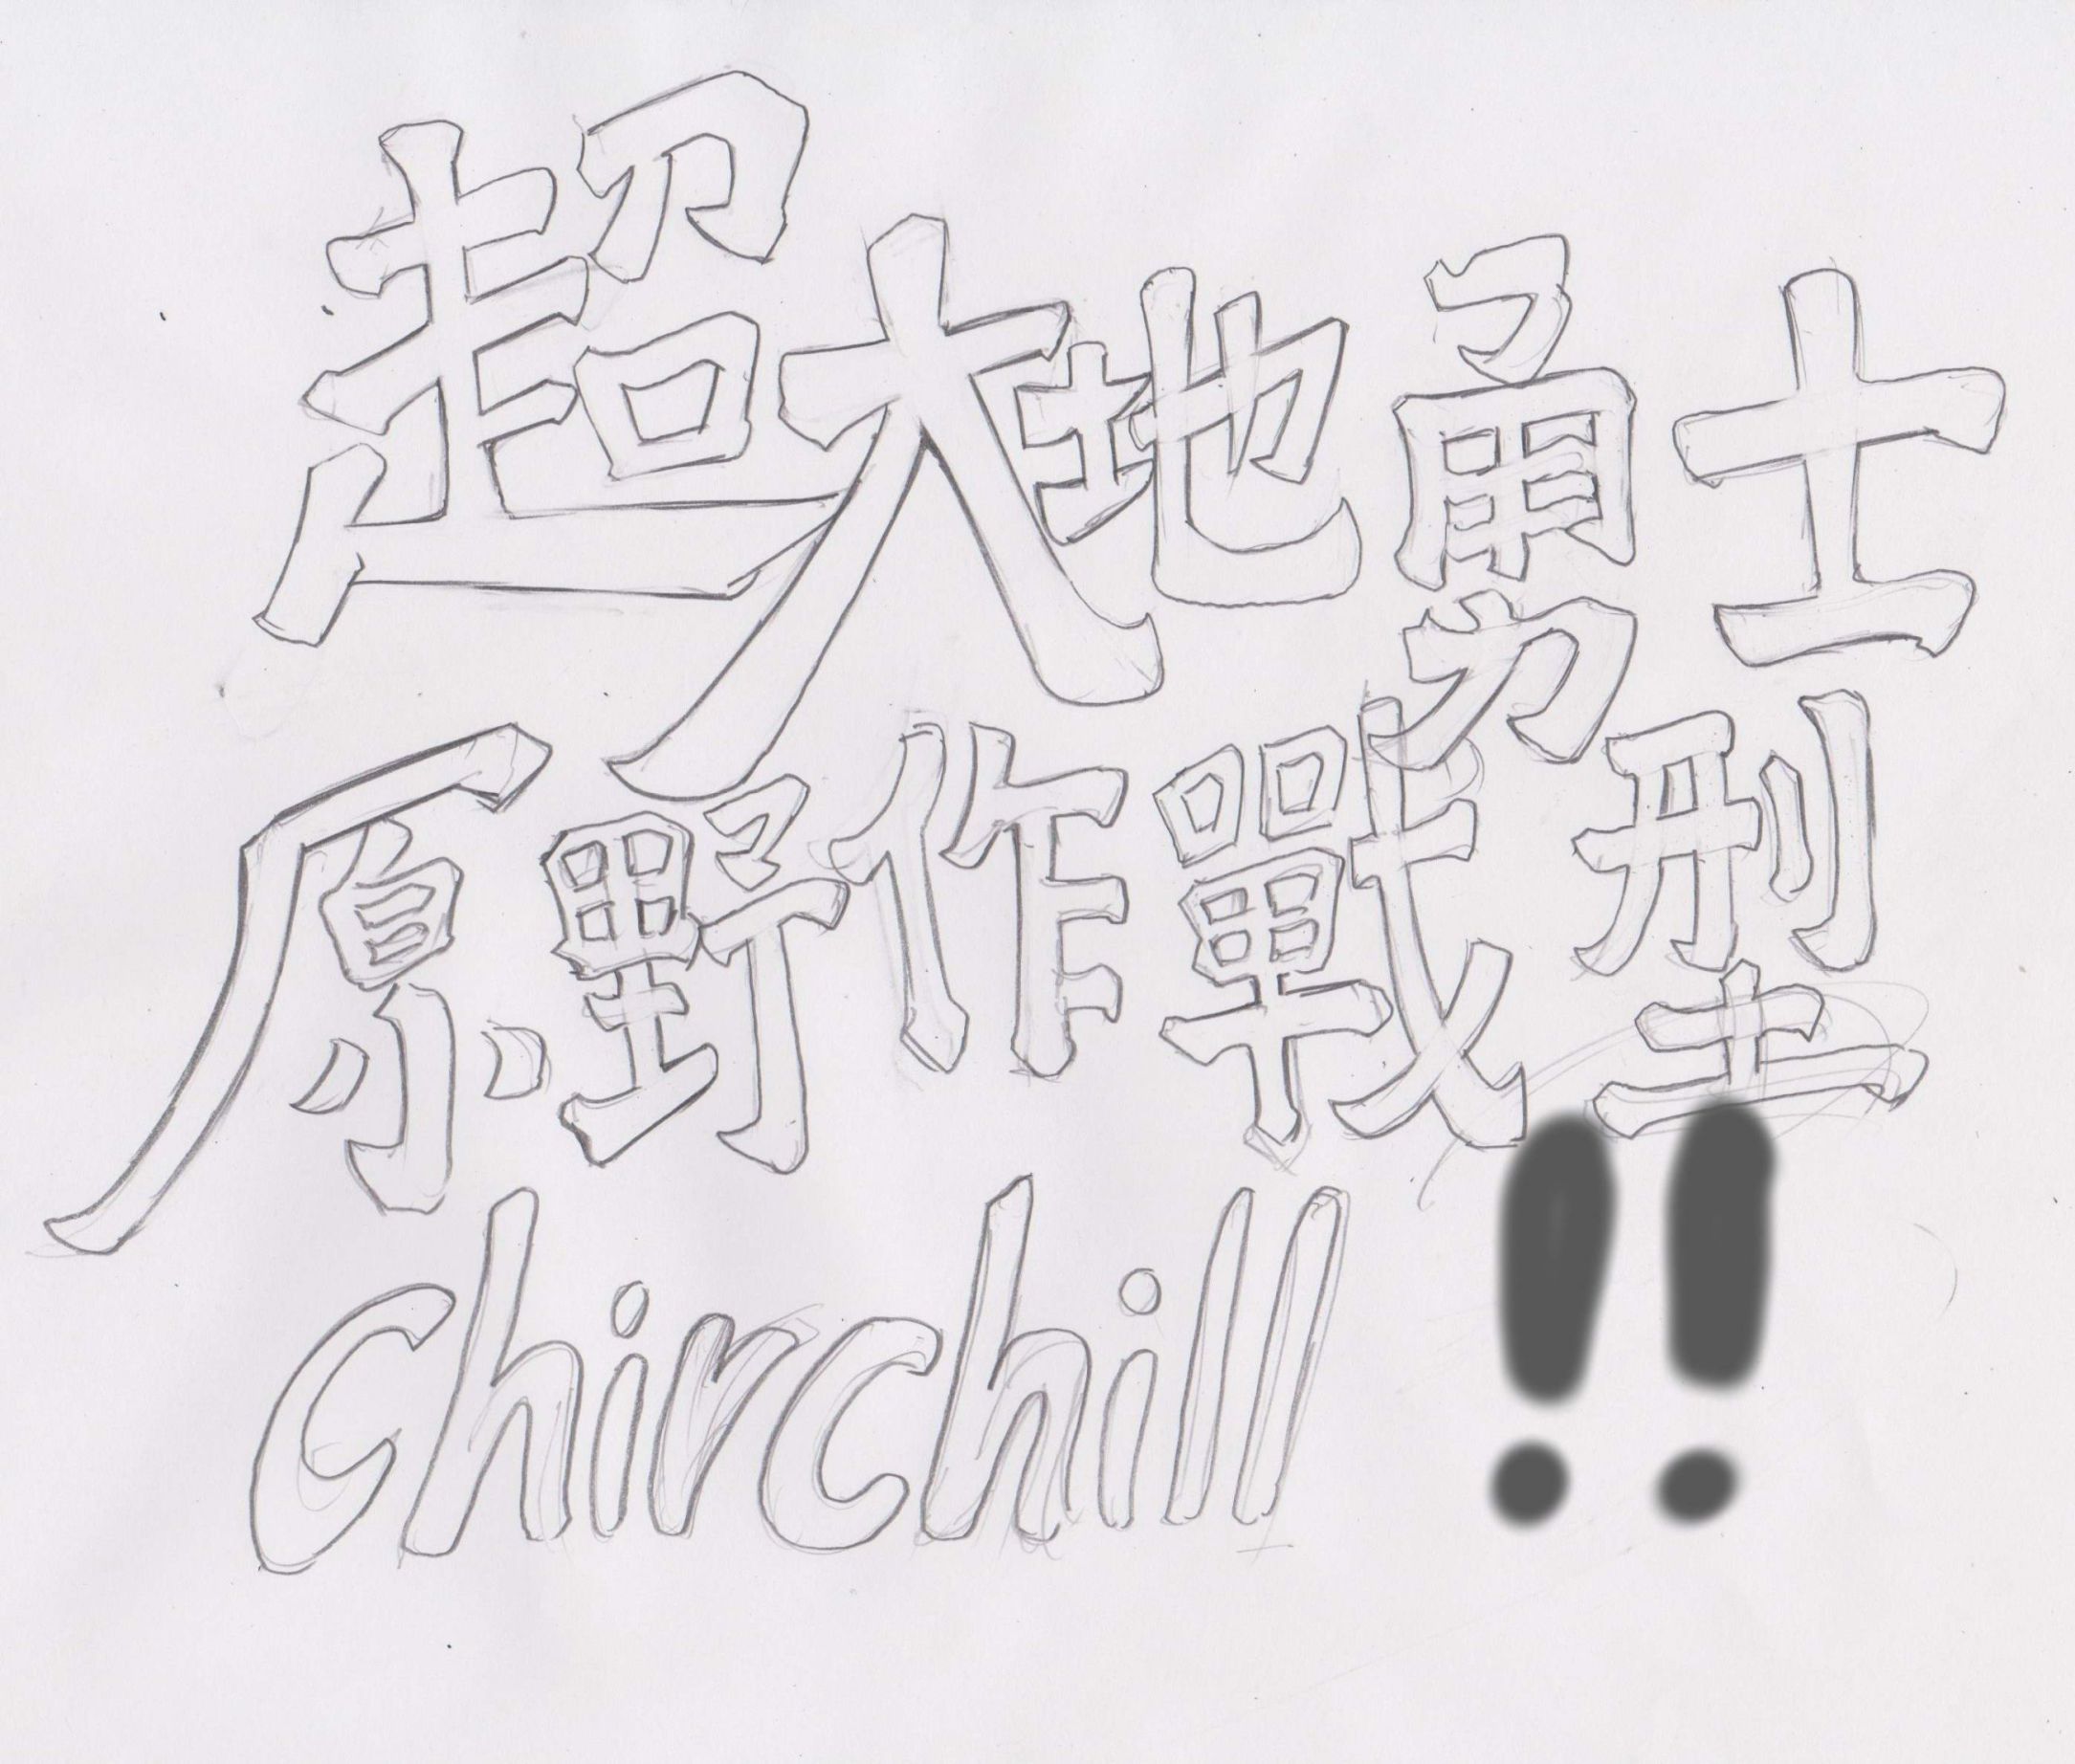 超大地勇士
原野作戰型
Chirchill!!